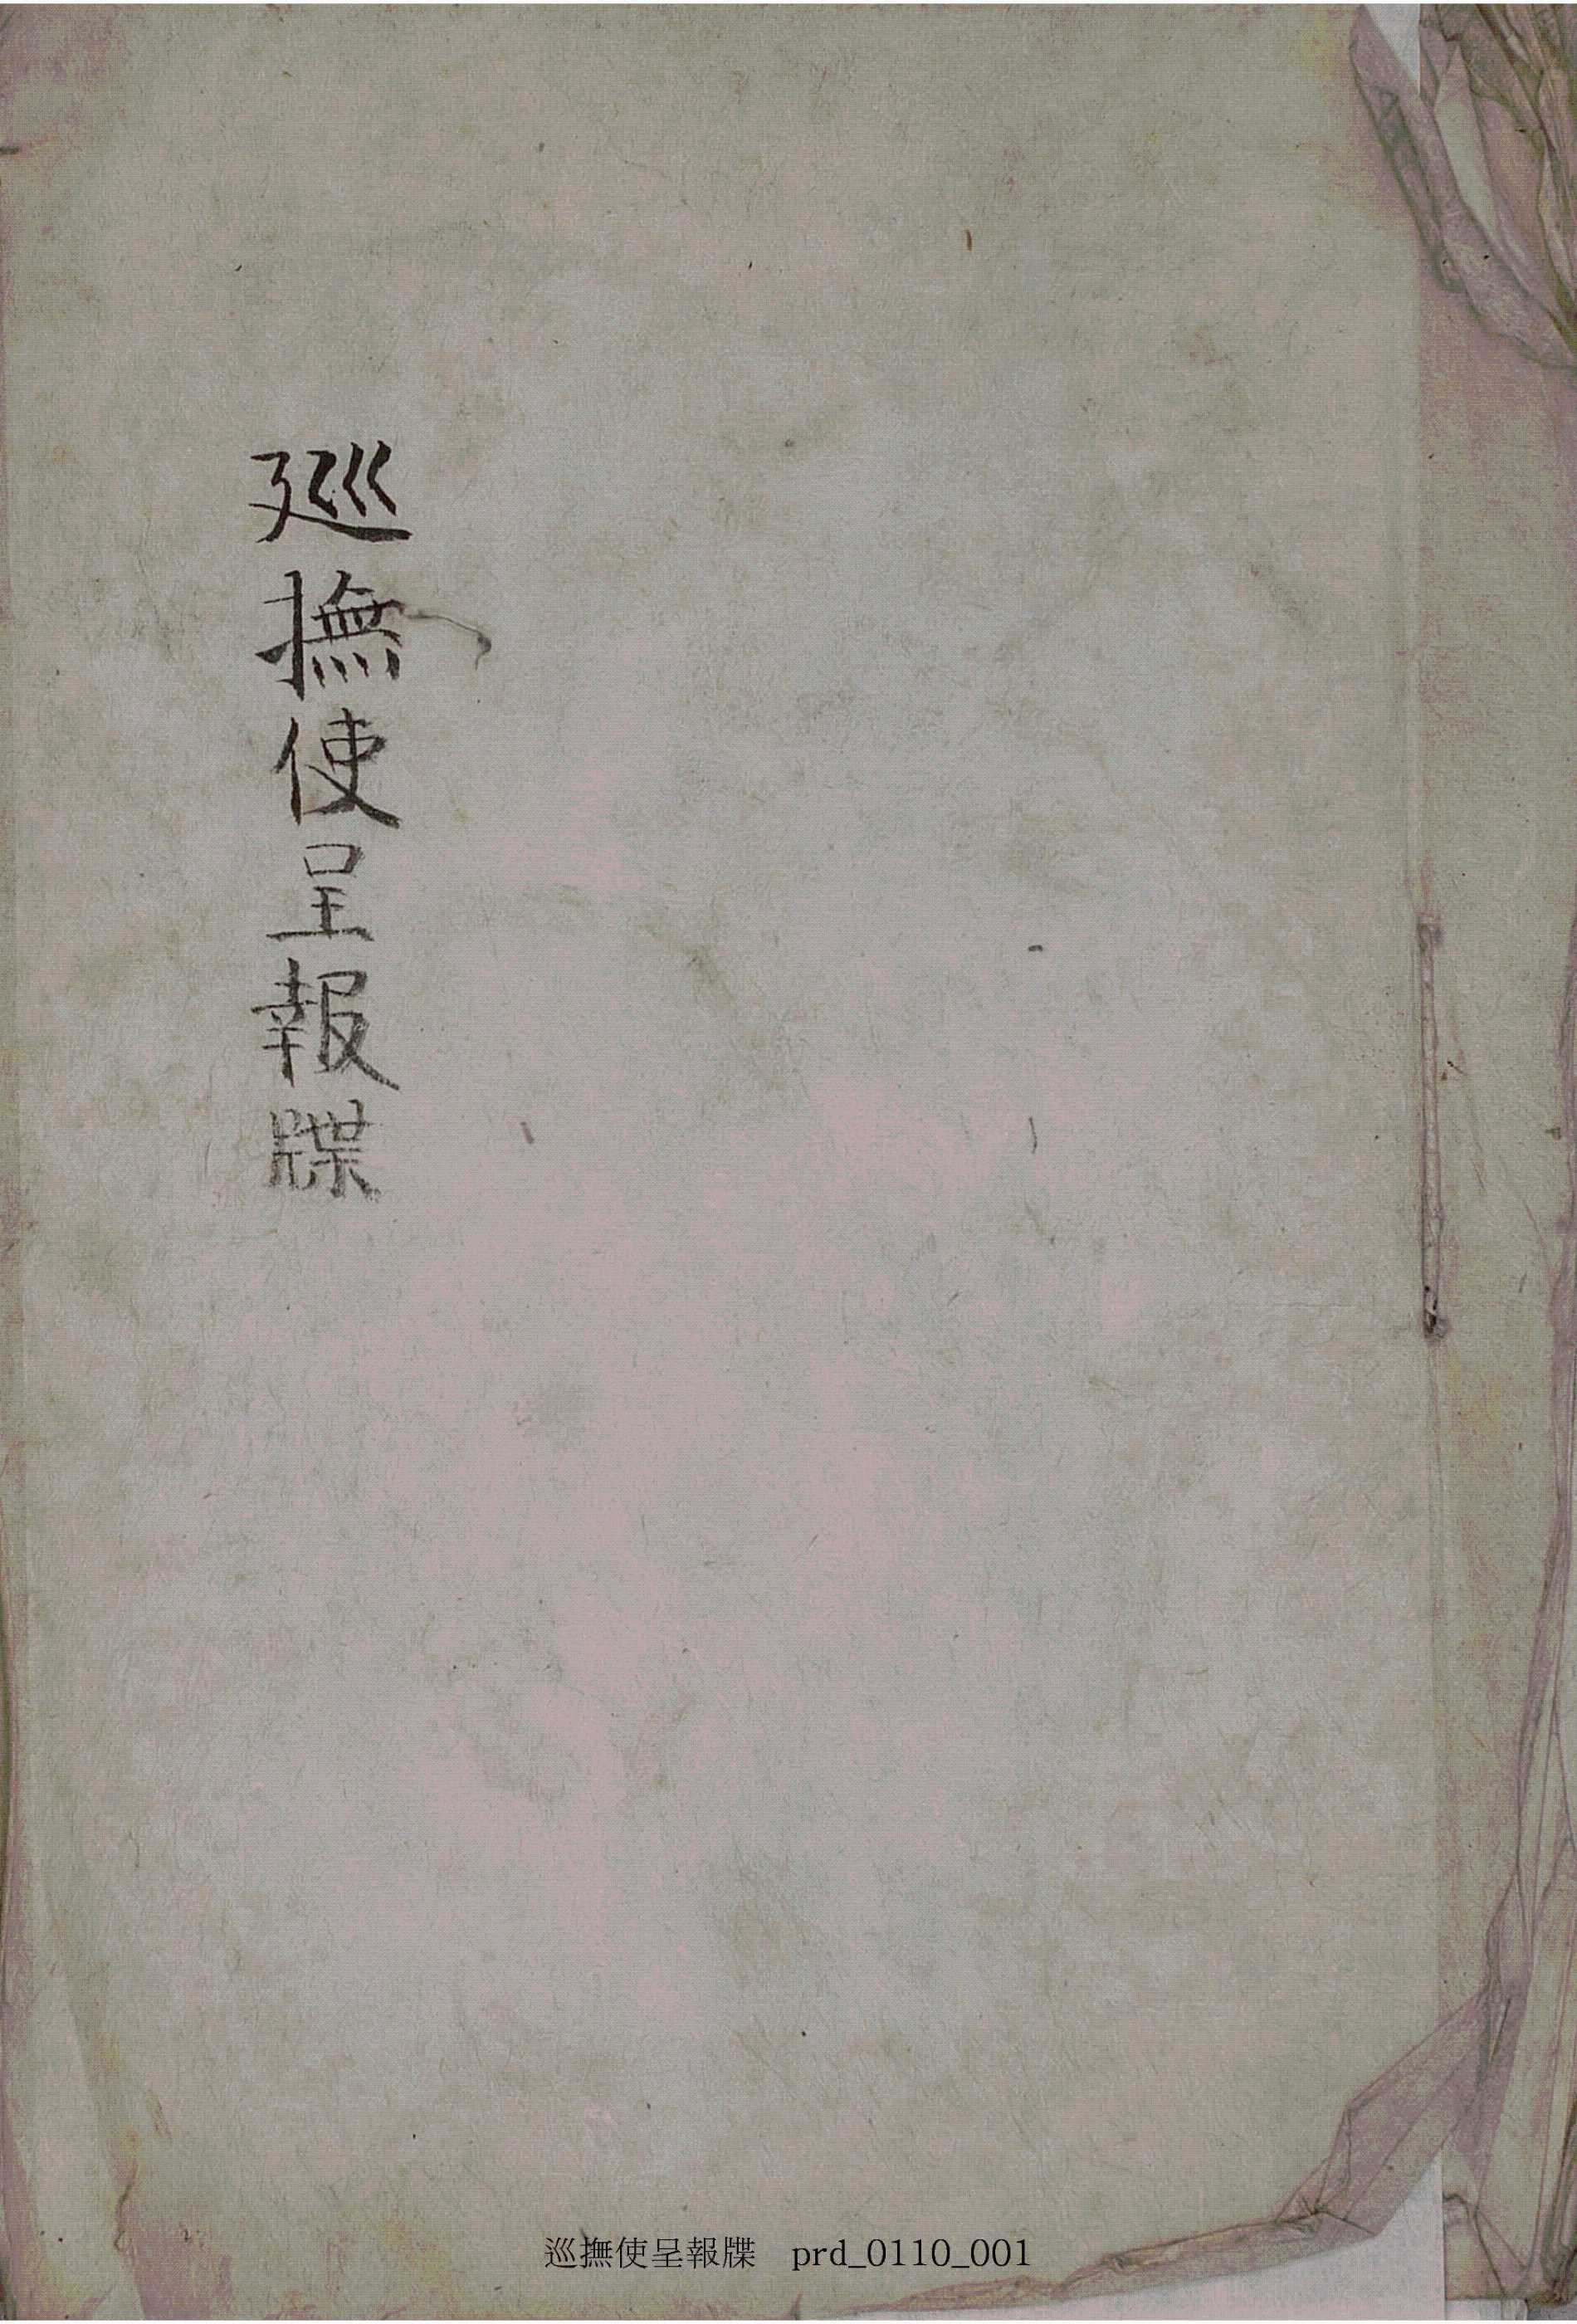 廵撫使呈報牒
巡撫使呈報牒 prd_0110_001